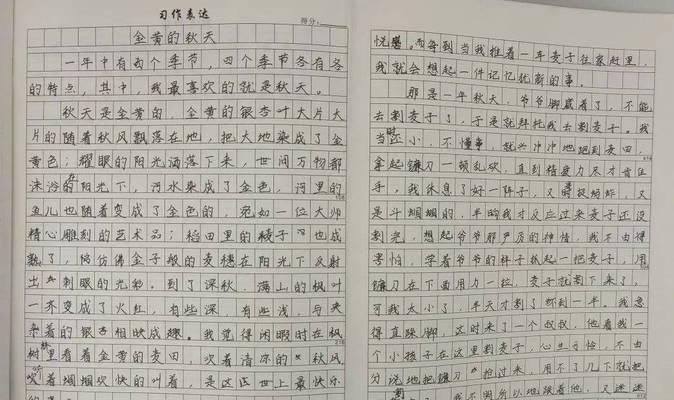 习作表达
得分:
金黄的秋天
一年中有四个季节，四个季节各有各
的特点，其中，我最喜欢的就是秋天。
秋天是金黄的，金黄的银杏叶大片大
片的随着秋风飘落在地，把大地染成了金
黄色；耀眼的阳光洒落下来，世间万物都
沐浴在阳光下，河水染成了金色，河里的
鱼儿也随着变成了金色的，宛如一位大师
精心雕刻的艺术品；稻田里的稻子也成
熟了，仿佛金子般的麦穗在阳光下反射
出刺眼的光彩。到了深秋，满山的枫叶
一齐变成了火红，有些深，有些浅，与夹
杂着的银杏相映成趣。我觉得闲暇时在枫
树林里看着金黄的麦田，吹着清凉的秋风
听着蝈蝈欢快的叫着，是这世上最快乐
悦。而每到当我推着一车麦子往家赶里，
我就会想起一件记忆犹新的事。
那是一年秋天，爷爷脚崴着了，不能
去割麦子了，于是就拜托我去割麦子。我
当时还小，不懂事，就兴冲冲地跑到麦田，
拿起镰刀一顿乱砍，直到精疲力尽才肯住
手，我休息了好一阵子，又捉蚂蚱，又
是斗蝈蝈的，半晌我才反应过来麦子还没
割完，想起爷爷那严厉的神情，我不由得
害怕，学着爷爷的样子抓起一把麦子，用
镰刀在下面用力一拉，麦子就割下来了，
可我太小了，半天才割了折到一半。我急
得直跺脚，这时来了一个叔叔，他看我一
个小孩子在这里割麦子，心生可怜，不由
分说地把镰刀抢过来，用不了几下就把
我不明所以地跟着他，又迷迷